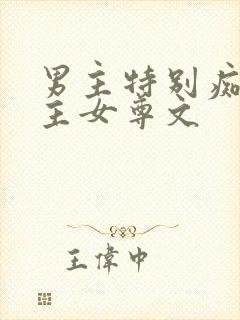 男主特别痴
主女尊文
王偉中